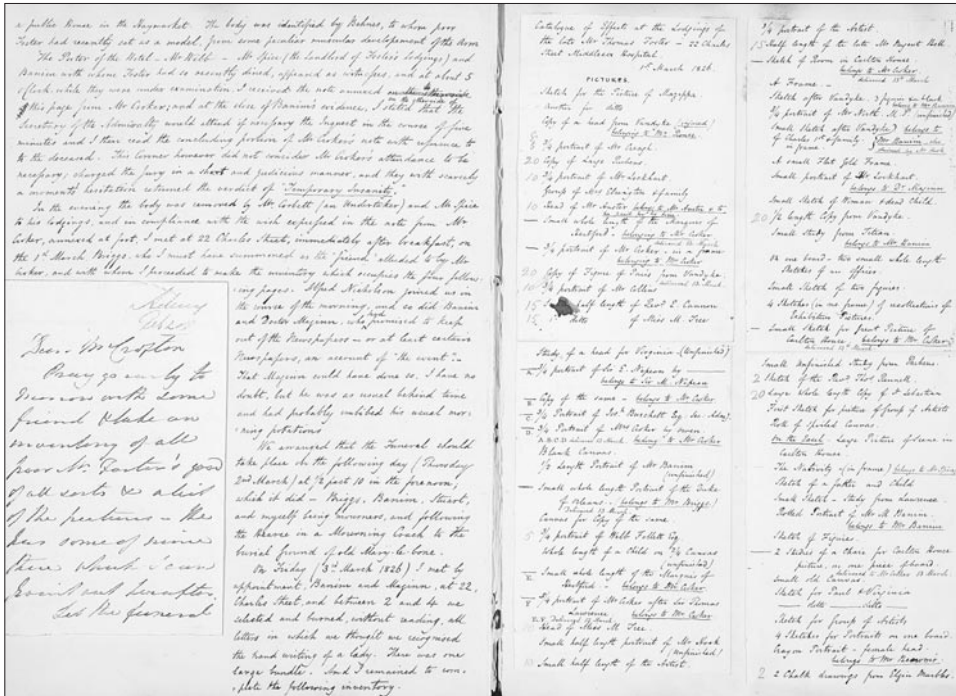 a public House in the Haymarket. The body was identified by Behnes, to whom poor
Foster had recently sat as a model, from some peculiar muscular development of the Arm
The Porter of the Hotel - Mr Webb - Mr Spice (the landlord of Foster's lodgings) and
Banim with whom Foster had so recently dined, appeared as witnesses, and at about 5
o'Clock while they were under examination I received the note annexed
this page from Mr Croker; and at the close of Banim's evidence, I stated that the
Secretary of the Admiralty would attend if necessary the Inquest in the course of five
minutes and I then read the concluding portion of Mr Croker's note with reference to
to the deceased. The Coroner however did not consider Mr Croker's attendance to be
necessary; charged the jury in a short and judicious manner, and they with scarcely
a moments hesitation returned the verdict of "Temporary Insanity."
In the evening the body was removed by Mr Corbett (an Undertaker) and Mr Spice
to his lodgings, and in compliance with the wish expressed in the note from Mr
Croker, annexed at foot, I met at 22 Charles Street, immediately after breakfast, on
the 1st March Briggs, who I must have summoned as the "friend" alluded to by Mr
Croker, and with whom I proceeded to make the inventory which occupies the four follow-
-ing pages. Alfred Nicholson joined us in
the course of the morning, and so did Banim
and Doctor Maginn, who had promised to keep
out of the Newspapers - or at least certain
Newspapers, an account of "the event" -
That Maginn could have done so, I have no
doubt, but he was as usual behind time
and had probably imbibed his usual mor-
-ning potations
We arranged that the Funeral should
take place on the following day (Thursday
2nd March) at 1/2 past 10 in the forenoon;
which it did - Briggs, Banim, Stuart,
and myself being mourners, and following
the Hearse in a Mourning Coach to the
burial ground of old Mary-le-bone.
On Friday (3rd March 1826) I met by
appointment, Banim and Maginn, at 22,
Charles Street, and between 2 and 4 we
selected and burned, without reading, all
letters in which we thought we recognised
the hand writing of a lady. There was one
large bundle. And I remained to com-
-plete the following inventory.
Dear Mr Crofton
Pray go early to
friend & take an
inventory of all
poor Mr Foster's goods
of all sorts & a list
of the pictures - he
has some of mine
there which I can
point out hereafter.
Let the funeral
Catalogue of Effects at the Lodgings of
the late Mr Thomas Foster - 22 Charles
Street Middlesex Hospital.
1st March 1826.
PICTURES.
Sketch for the Picture of Mazeppa.
Another for ditto
Copy of a head from Vandyke
8 3/4 portrait of Mr Creagh.
20 Copy of Large Rubens.
10 3/4 portrait of Mr Lockhart.
Group of Mrs Elvington & family
10 Head of Mr Austin
- Small whole length of the Marquis of
Hertford - belonging to Mr Croker
- 3/4 portrait of Mr Croker - in a frame
belonging to Mr Croker
20 Copy of Figure of Paris from Vandyke.
10 3/4 portrait of Mr Collins
15 half length of Revd E. Cannon
15 ditto of Miss M. Tree
Study of a head for Virginia (Unfinished)
3/4 portrait of Sir E. Nepean by
belongs to Sir M. Nepean
Copy of the same - belongs to Mr Croker
3/4 Portrait of Mrs Croker by Owen
belongs to Mr Croker
Blank Canvas.
1/2 length Portrait of Mr Banim
(unfinished)
- Small whole length Portrait of the Duke
of Orleans. - belongs to Mr Briggs
Canvas for Copy of the same.
5 3/4 portrait of Webb Follett Esq.
(unfinished)
Whole length of a Child on 3/4 Canvas
- Small whole length of the Marquis of
Hertford - belongs to Mr Croker.
3/4 portrait of Mr Croker after Sir Thomas
Lawrence belongs to Mr Croker
Head of Miss M. Tree.
Small half length portrait of Mr Hook
(unfinished)
Small half length of the Artist.
3/4 portrait of the Artist.
15 Half length of the late Mr Nugent Bell
- Sketch of Room in Carlton House.
belongs to Mr Croker
A Frame -
Sketch after Vandyke
Small sketch after Vandyke
of Charles 1st & family
in frame
A small Flat Gold Frame.
Small portrait of Mr Lockhart.
belongs to Dr Maginn
Small Sketch of Woman & dead Child.
20 1/2 length Copy from Vandyke.
Small study from Titian.
belongs to Mr Banim
on one board - two small whole length
Sketches of an officer.
Small Sketch of two figures.
4 Sketches (in one frame) of recollections of
Exhibition Pictures.
- Small Sketch for great Picture of
Carlton House belongs to Mr Croker
Small unfinished Study from Rubens.
2 Sketch of the Revd Thos Rennell.
20 Large whole length Copy of St Sebastian
First Sketch for picture of Group of Artists
Role of spoiled Canvas.
On the Easel - Large Picture of Scene in
Carlton House.
The Nativity (in frame)
Sketch of a father and Child
Small Sketch - Study from Lawrence.
Rolled Portrait of Mr Banim.
belongs to Mr Banim
Sketch of Figures.
- 2 Studies of a Chair for Carlton House
picture, on one piece of board.
Small old Canvas.
Sketch for Paul & Virginia
- ditto - ditto -
Sketch for group of Artists
4 Sketches for Portraits on one board.
Crayon Portrait - female head.
2 2 Chalk drawings from Elgin Marbles.